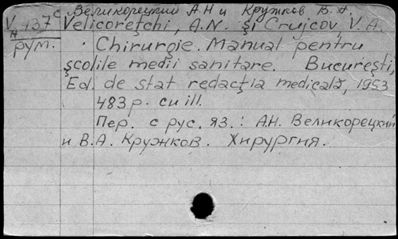 с. Великорецкий А.Н и Кружков В.А.
V 137
A
рум.
Velicoreţchi, A.N. şi Crujcov, V.A.
Chirurgie. Manual pentru
şcolile medii sanitare. Bucureşti,
Ed. de stat redacţia medicală, 1953
483 p. cu ill.
Пер. с рус. яз.: А.Н. Великорецкий
и В.А. Кружков. Хирургия.